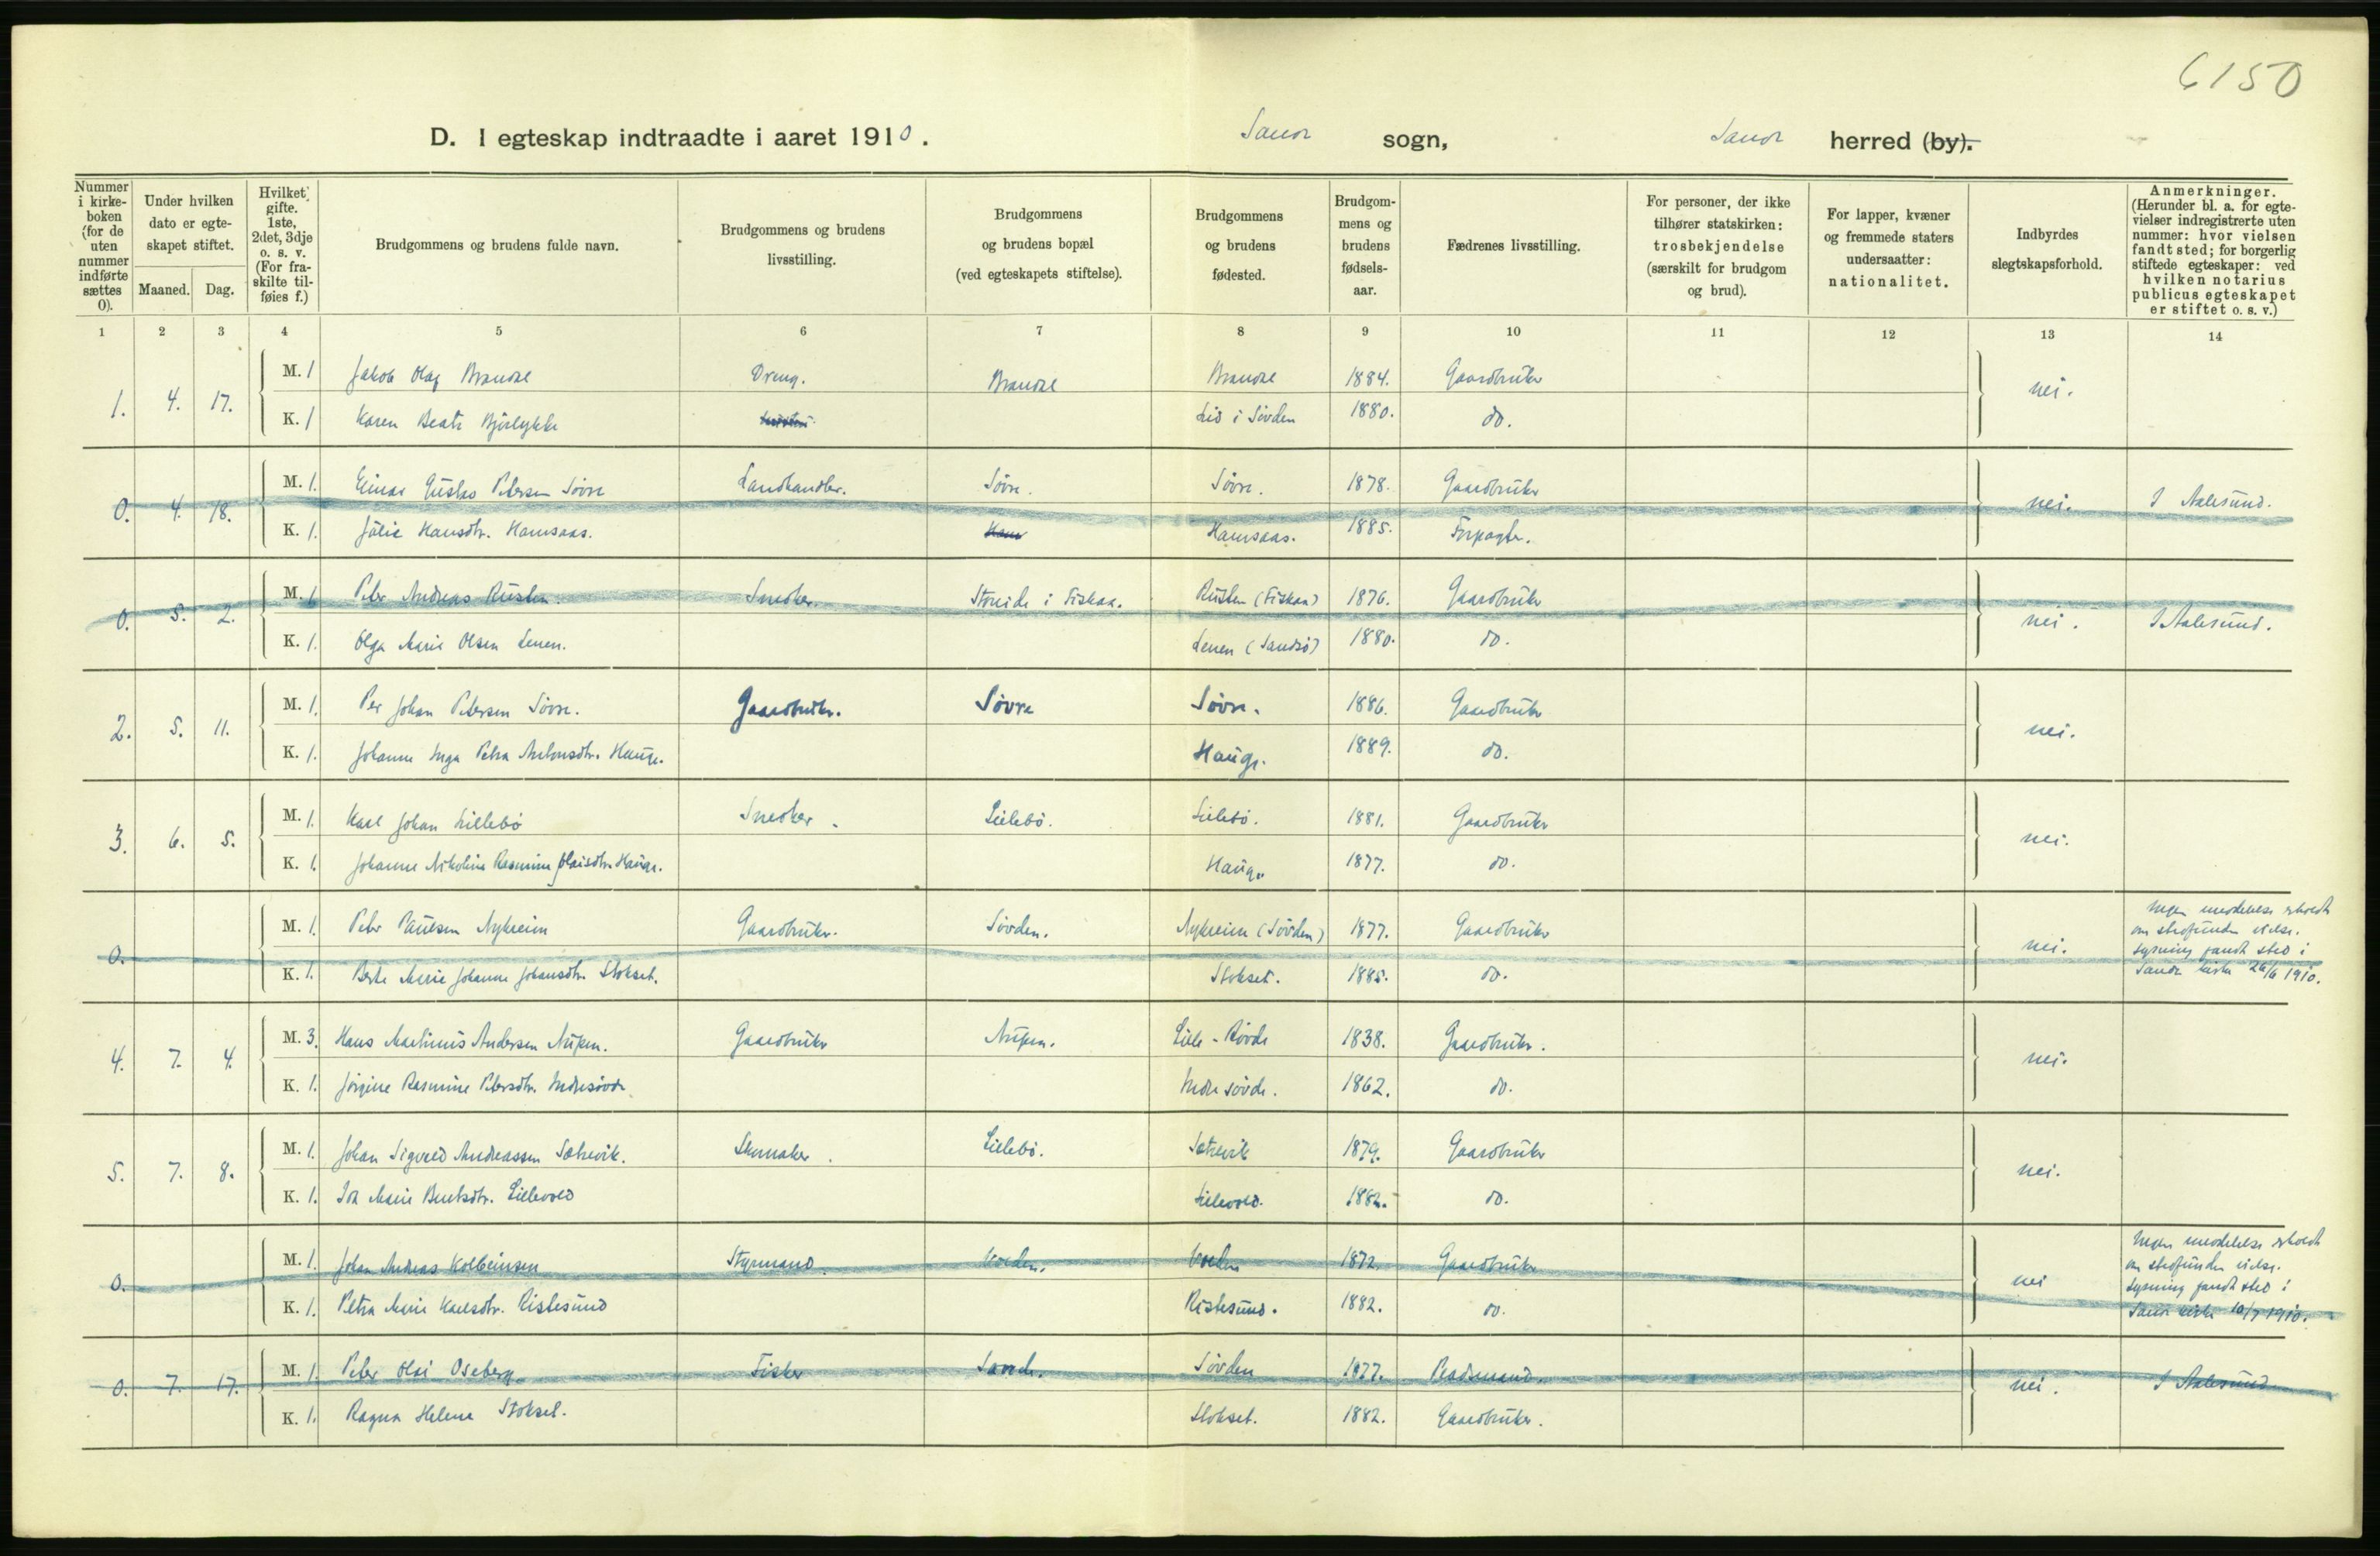 6150
D. I egteskap indtraadte i aaret 1910.
sogn,
herred (by).
Nummer i kirkeboken (for de uten nummer indførte sættes 0).
Under hvilken dato er egteskapet stiftet.
Maaned. Dag.
Hvilket gifte. 1ste, 2det, 3dje o. s. v. (For fraskilte tilføies f.)
Brudgommens og brudens fulde navn.
Brudgommens og brudens livsstilling.
Brudgommens og brudens bopæl (ved egteskapets stiftelse).
Brudgommens og brudens fødested.
Brudgommens og brudens fødselsaar.
Fædrenes livsstilling.
For personer, der ikke tilhører statskirken: trosbekjendelse (særskilt for brudgom og brud).
For lapper, kvæner og fremmede staters undersaatter: nationalitet.
Indbyrdes slegtskapsforhold.
Anmerkninger. (Herunder bl. a. for egtevielser indregistrerte uten nummer: hvor vielsen fandt sted; for borgerlig stiftede egteskaper: ved hvilken notarius publicus egteskapet er stiftet o. s. v.)
1 2 3 4 5 6 7 8 9 10 11 12 13 14
1. 4. 17. M. 1 Jakob Olaf Brandal Dreng. Brandal Brandal 1884. Gaardbruker nei.
K. 1 Karen Beate Bjørlykke Lid i Sövden 1880. do.
0. 4. 18. M. 1. Einar Gustav Petersen Sövre Landhandler. Sövre. Sövre. 1878. Gaardbruker nei. I Aalesund.
K. 1. Julie Hansdtr. Hamsaas. Hamsaas. 1885. Forpagter.
0. 5. 2. M. 1. Peter Andreas Rusten. Snedker. i Fiskaa. Rusten (Fiskaa) 1876. Gaardbruker nei. I Aalesund.
K. 1. Olga Marie Olsen Lenen. Lenen (Sandsö) 1880. do.
2. 5. 11. M. 1. Per Johan Petersen Sövre. Gaardbruker. Sövre Sövre. 1886. Gaardbruker nei.
K. 1. Johanne Inga Petra Antonsdtr. Hauge. Hauge. 1889. do.
3. 6. 5. M. 1. Karl Johan Lillebö Snedker. Lillebö. Lillebö. 1881. Gaardbruker nei.
K. 1. Johanne Nikoline Rasmine Olaisdtr. Hauge. Hauge. 1877. do.
0. M. 1. Peter Paulsen Nykreim Gaardbruker. Sövden. Nykreim (Sövden) 1877. Gaardbruker nei. Ingen meddelelse erholdt
om stedfunden vielse.
Lysning fandt sted i
kirke 26/6 1910.
K. 1. Berte Marie Johanne Johansdtr. Stokset. Stokset. 1885. do.
4. 7. 4. M. 3. Hans Martinus Andersen Nupen. Gaardbruker Nupen. Lille-Rövde 1838. Gaardbruker. nei.
K. 1. Jörgine Rasmine Petersdtr. Indresövde Indresövde. 1862. do.
5. 7. 8. M. 1. Johan Sigvald Andreassen Sætrevik. Skomaker. Lillebö. Sætrevik 1879. Gaardbruker nei.
K. 1. Ida Marie Berntsdtr. Lillevold Lillevold. 1882. do.
0. M. 1. Johan Andreas Kolbeinsen Styrmand. Volden. Volden 1872. Gaardbruker nei Ingen meddelelse erholdt
om stedfunden vielse.
Lysning fandt sted i
kirke 10/7 1910.
K. 1. Petra Marie Karlsdtr. Ristesund Ristesund. 1882. do.
0. 7. 17. M. 1. Peter Olai Oseberg Fisker Sövden 1877. nei. I Aalesund
K. 1. Ragna Helene Stokset. Stokset. 1882. Gaardbruker.